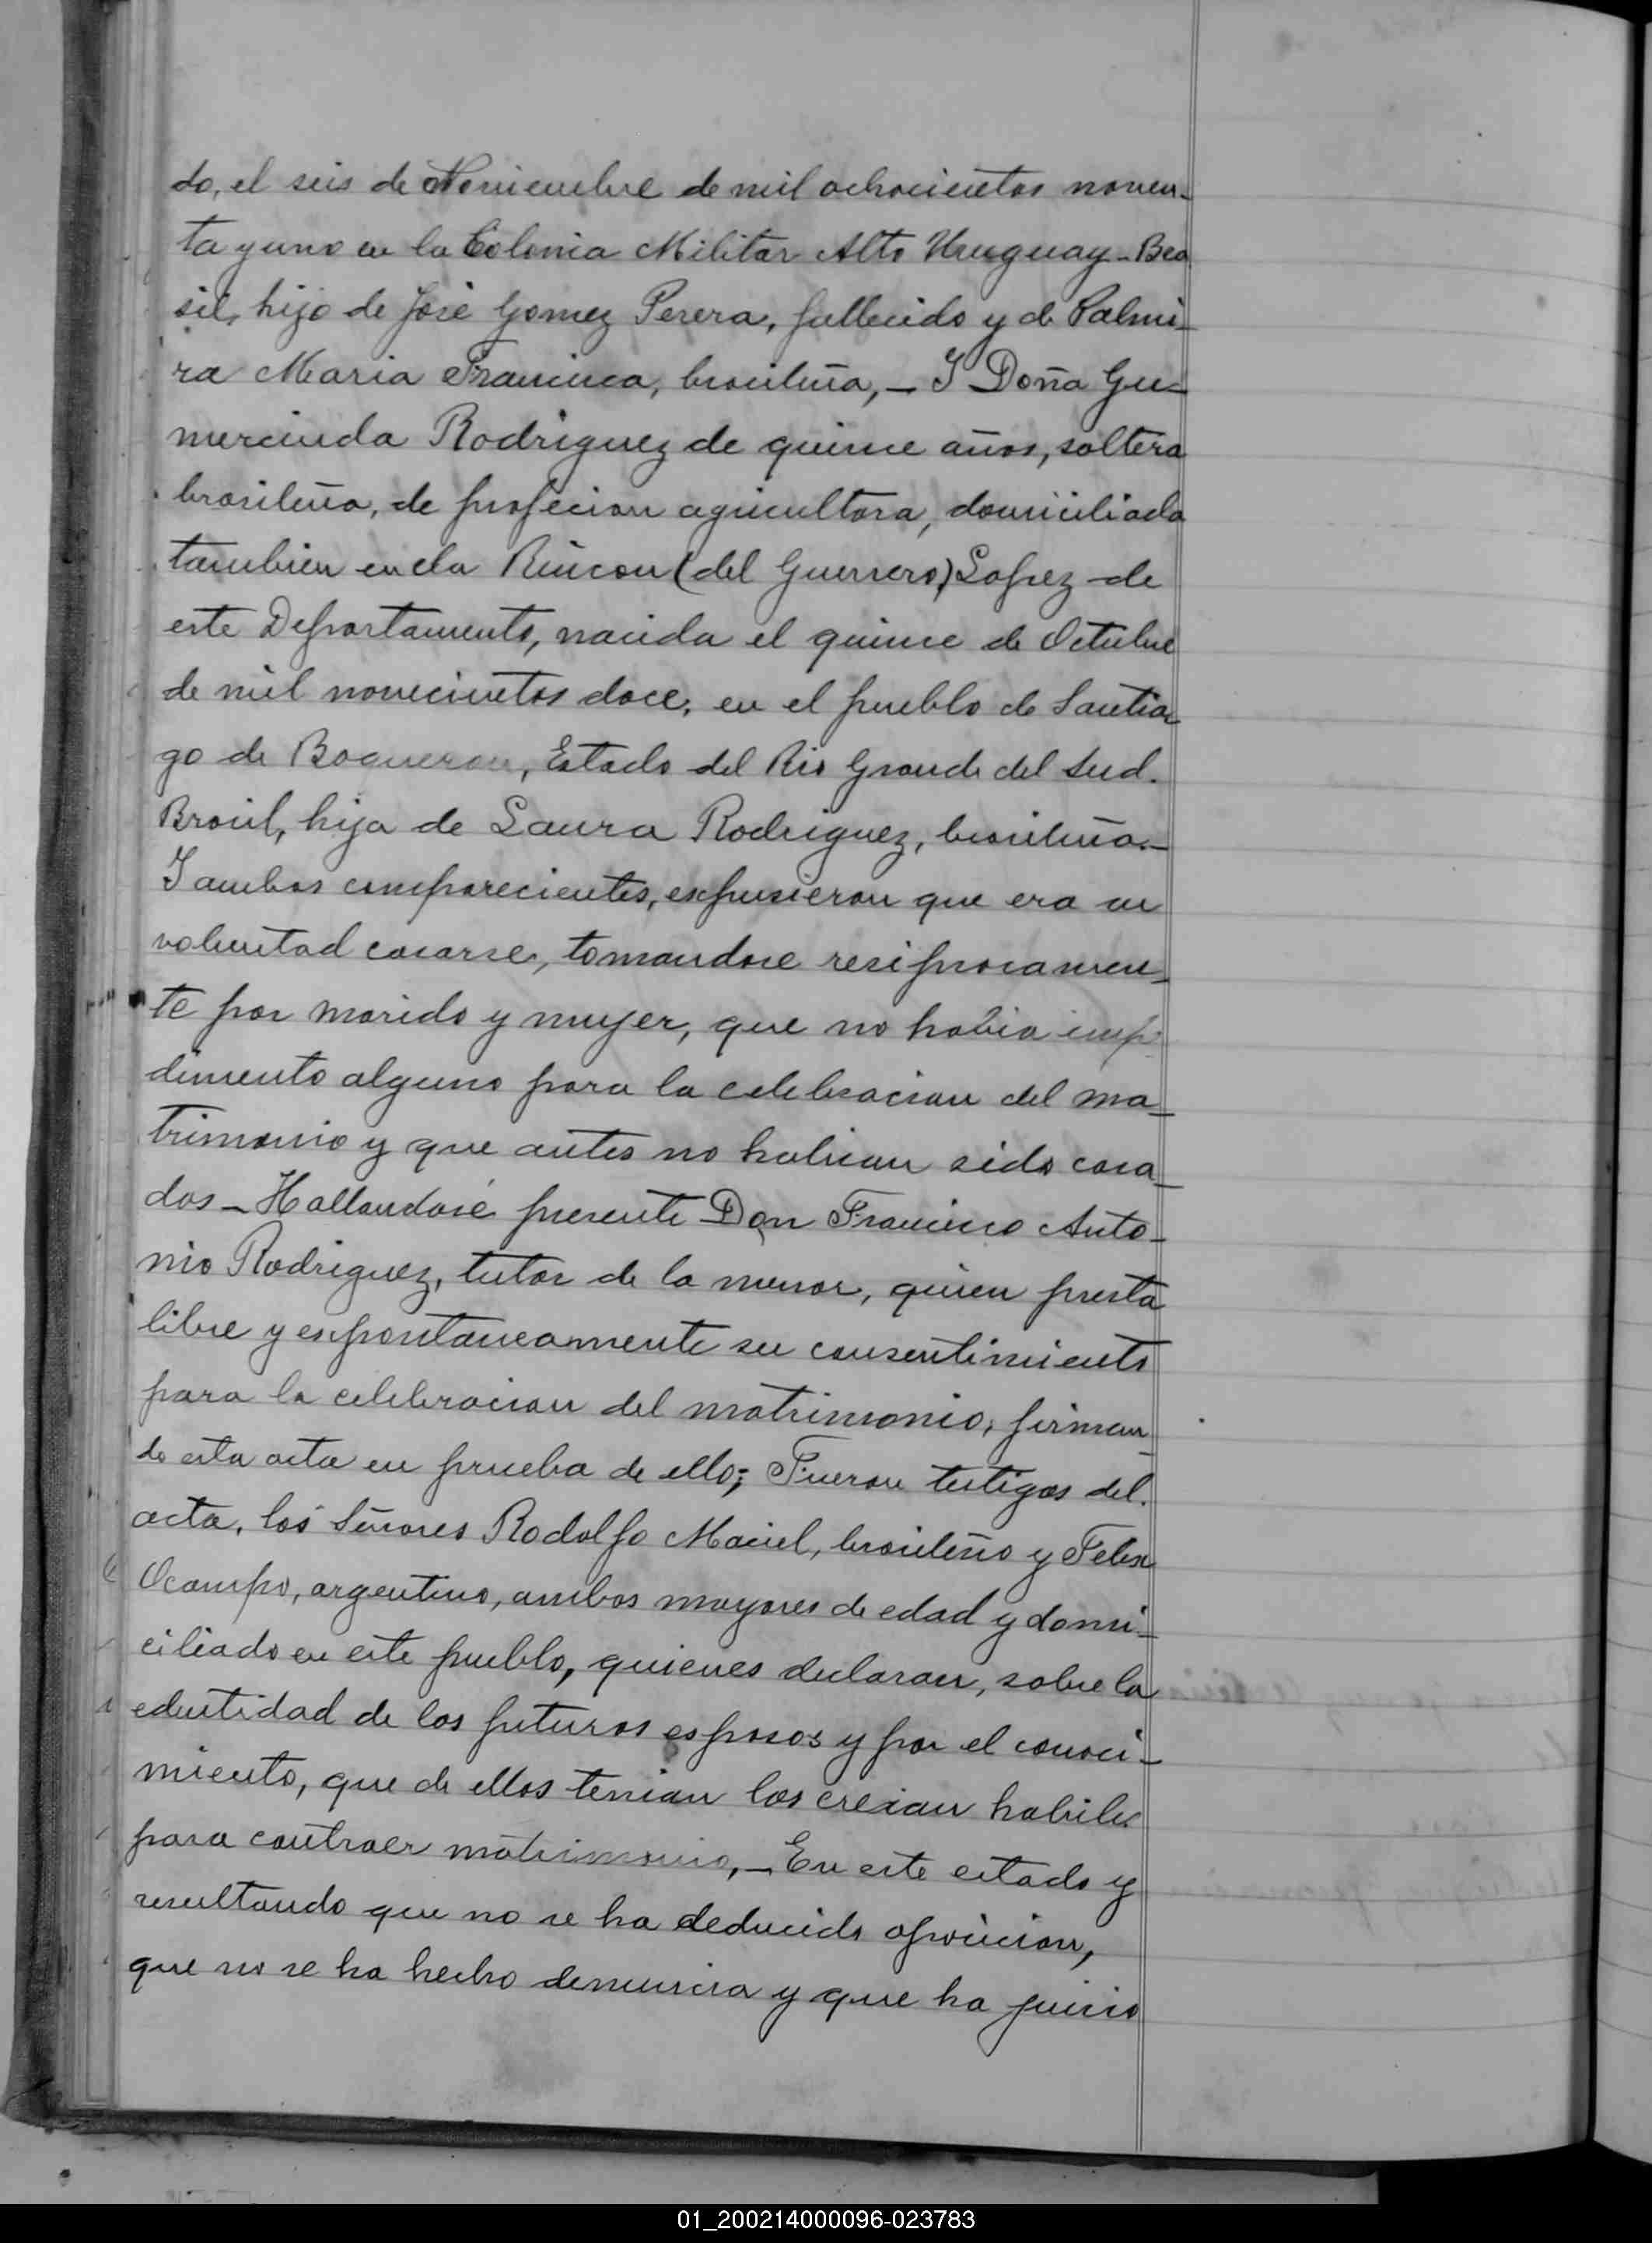 do, el seis de Noviembre de mil ochocientos noven-
ta y uno en la Colonia Militar Alto Uruguay - Bra
sil, hijo de José Gomez Perera, fallecido y de Palmi-
ra Maria Francisca, brasileña, - I Doña Gu-
mercinda Rodriguez de quince años, soltera
brasileña, de profecion agricultora, domiciliada
tambien en la Rincon (del Guerrero) Lopez de
este Departamento, nacida el quince de Octubre
de mil novecientos doce, en el pueblo de Santia
go de Boqueron, Estado del Rio Grande del Sud.
Brasil, hija de Laura Rodriguez, brasileña. -
I ambos comparecientes, expusieron que era su
voluntad casarse, tomandose resiprocamen-
te por marido y mujer, que no habia imp
dimento alguno para la celebracion del ma-
trimonio y que antes no habian sido casa-
dos - Hallandosé presente Don Francisco Anto-
nio Rodriguez, tutor de la menor, quien presta
libre y espontaneamente su consentimiento
para la celebracion del matrimonio, firman-
do esta acta en prueba de ello; Fueron testigos del
acta, los Señores Rodolfo Maciel, brasileño y Felix
Ocampo, argentino, ambos mayores de edad y domi-
ciliado en este pueblo, quienes declaran, sobre la
edentidad de los futuros esposos y por el conoci-
miento, que de ellos tenian los creian habiles
para contraer matrimonio, - En este estado y
resultando que no se ha deducido oposicion,
que no se ha hecho denuncia y que ha juicio
01_200214000096-023783